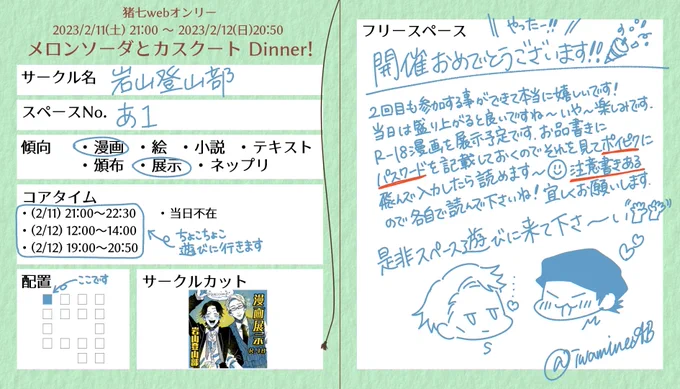 猪七webオンリー
2023/2/11(土) 21:00 ～ 2023/2/12(日)20:50
メロンソーダとカスクート Dinner!
サークル名 岩山登山部
スペースNo. あ1
傾向 ・漫画 ・絵 ・小説 ・テキスト
・頒布 ・展示 ・ネップリ
コアタイム
・(2/11) 21:00～22:30 ・当日不在
・(2/12) 12:00～14:00
・(2/12) 19:00～20:50
ちょこちょこ
遊びに行きます
配置
ここです
サークルカット
漫画展示
岩山登山部
フリースペース
やったー!!
開催おめでとうございます!!
2回目も参加する事ができて本当に嬉しいです!
当日は盛り上がると良いですね〜いや〜楽しみです.
R-18漫画を展示予定です. お品書きに
パスワードを記載しておくのでそれを見てポイピクに
飛んで入力したら読めます〜 注意書きある
ので各自で読んで下さいね! 宜しくお願いします.
是非スペース遊びに来て下さ〜い